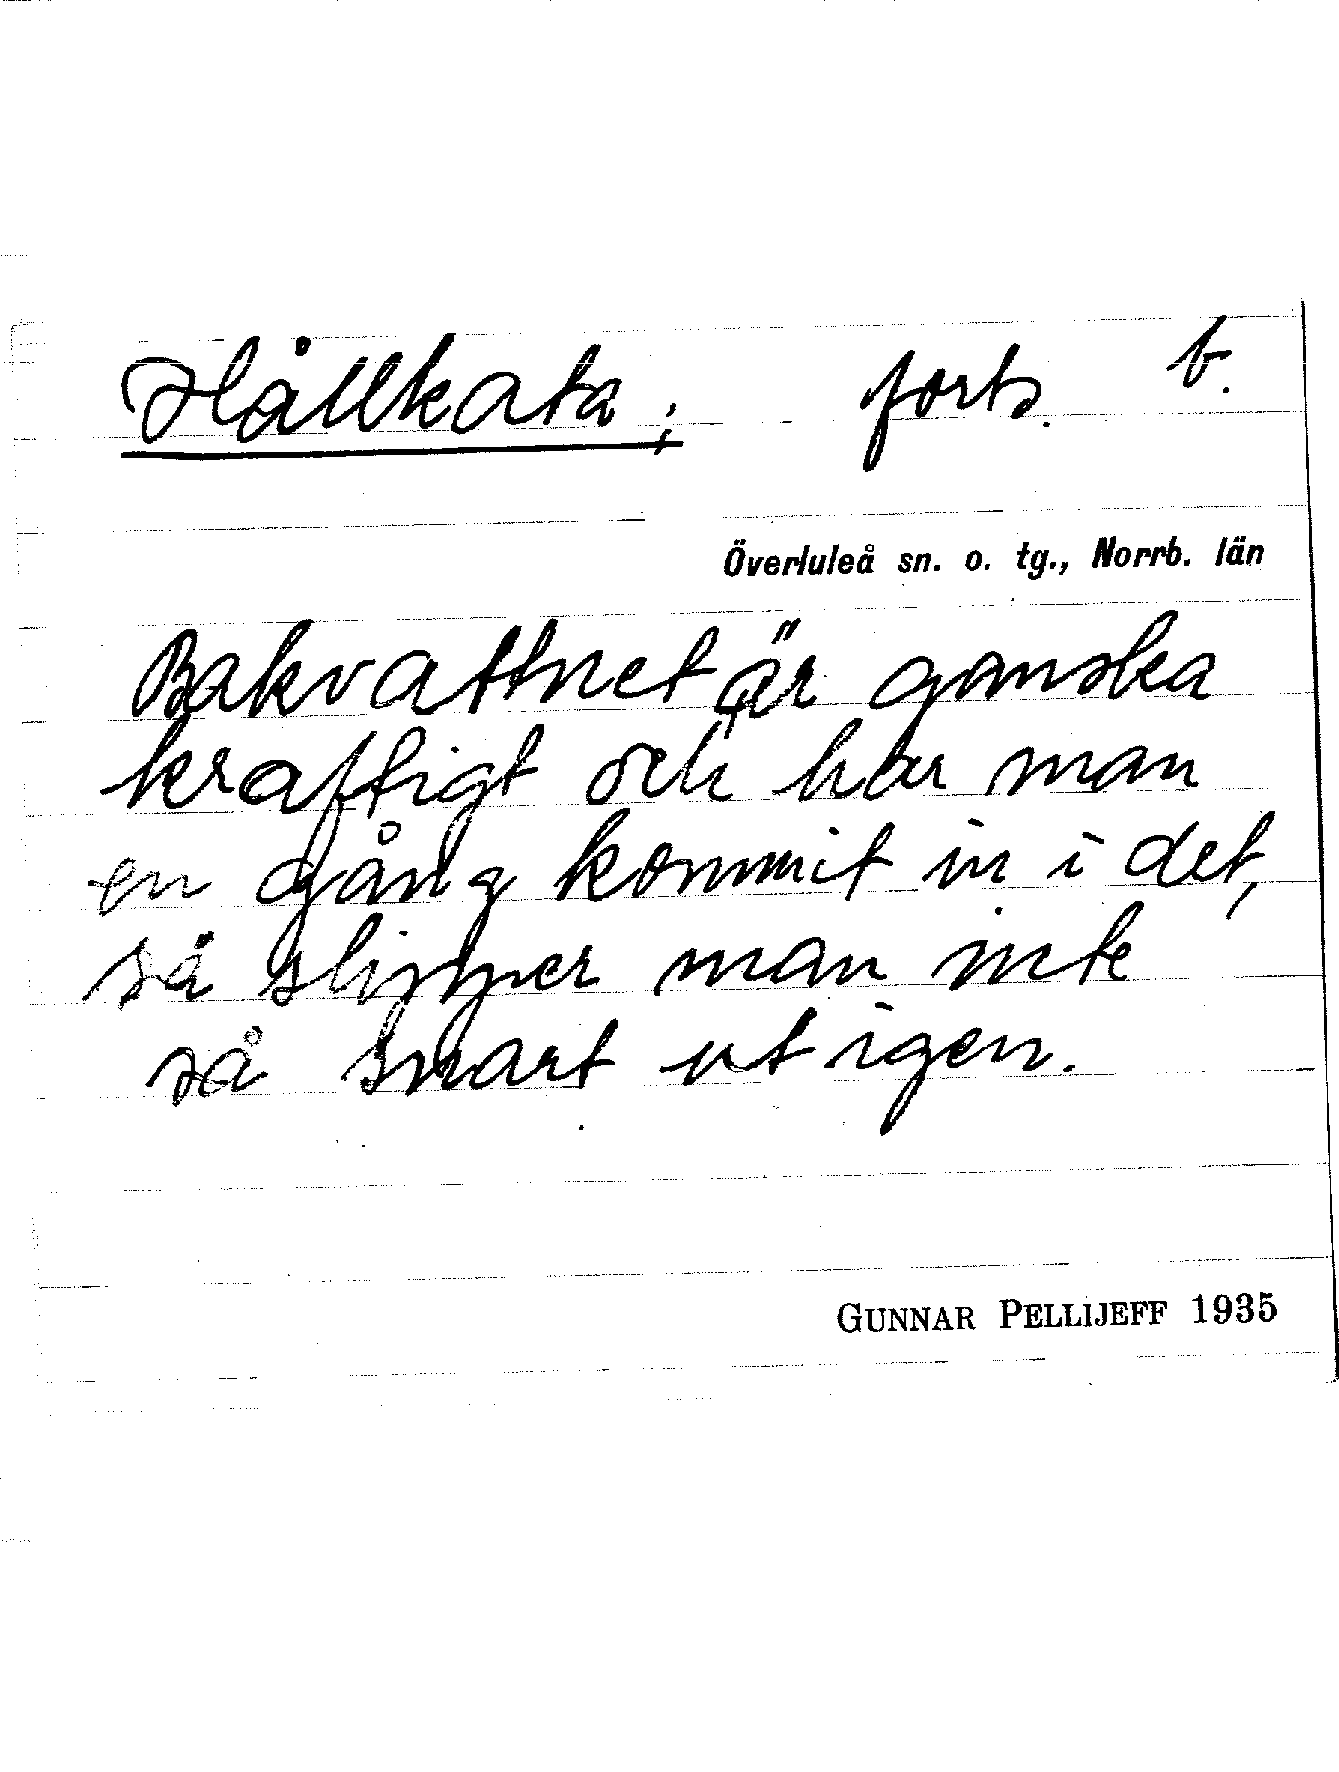 Hållkata; forts. b.
Överluleå sn. o. tg., Norrb. län
Bakvattnet är ganska
kraftigt och har man
en gång kommit in i det,
så slipper man inte
så snart ut igen.
GUNNAR PELLIJEFF 1935